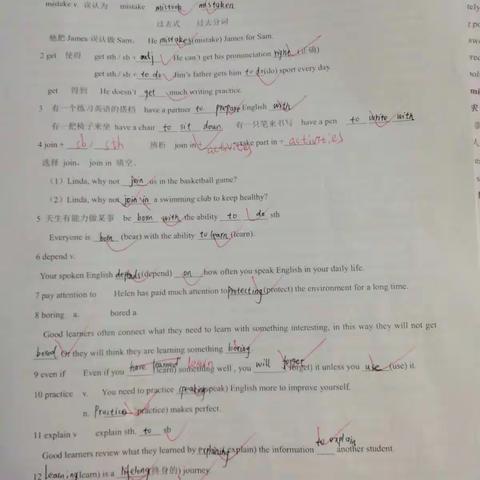 mistake v. 误认为 mistake mistook mistaken
过去式 过去分词
他把 James 误认做 Sam. He mistakes(mistake) James for Sam.
2 get 使得 get sth / sb + adj He can't get his pronunciation right (正确)
get sth / sb + to do Jim's father gets him to do(do) sport every day.
get 得到 He doesn't get much writing practice.
3 有一个练习英语的搭档 have a partner to prepare English with
有一把椅子来坐 have a chair to sit down 有一只笔来书写 have a pen to write with
4 join + sb / sth 辨析 join in + activities take part in + activities
选择 join, join in 填空.
(1) Linda, why not join in the basketball game?
(2) Linda, why not join in a swimming club to keep healthy?
5 天生有能力做某事 be born with the ability to do sth
Everyone is born (bear) with the ability to learn (learn).
6 depend v.
Your spoken English depends (depend) on how often you speak English in your daily life.
7 pay attention to Helen has paid much attention to protecting (protect) the environment for a long time.
8 boring a. bored a.
Good learners often connect what they need to learn with something interesting, in this way they will not get
bored Or they will think they are learning something boring
9 even if Even if you have learned learn (learn) something well , you will forget (forget) it unless you use (use) it.
10 practice v. You need to practice speaking(speak) English more to improve yourself.
n. Practice (practice) makes perfect.
11 explain v explain sth. to sb
Good learners review what they learned by explaining(explain) the information to explain another student.
12 learning(learn) is a lifelong (终身的) journey.